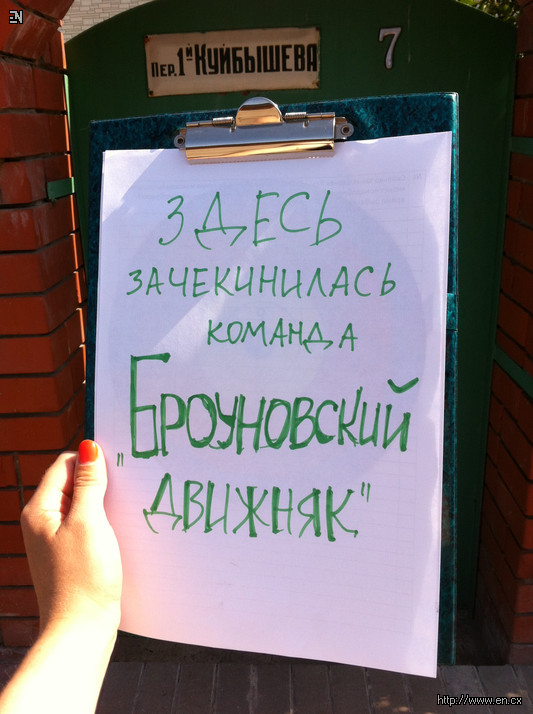 EN
Пер. 1й Куйбышева
7
ЗДЕСЬ
ЗАЧЕКИНИЛАСЬ
КОМАНДА
„БРОУНОВСКИЙ
ДВИЖНЯК"
http://www.en.cx